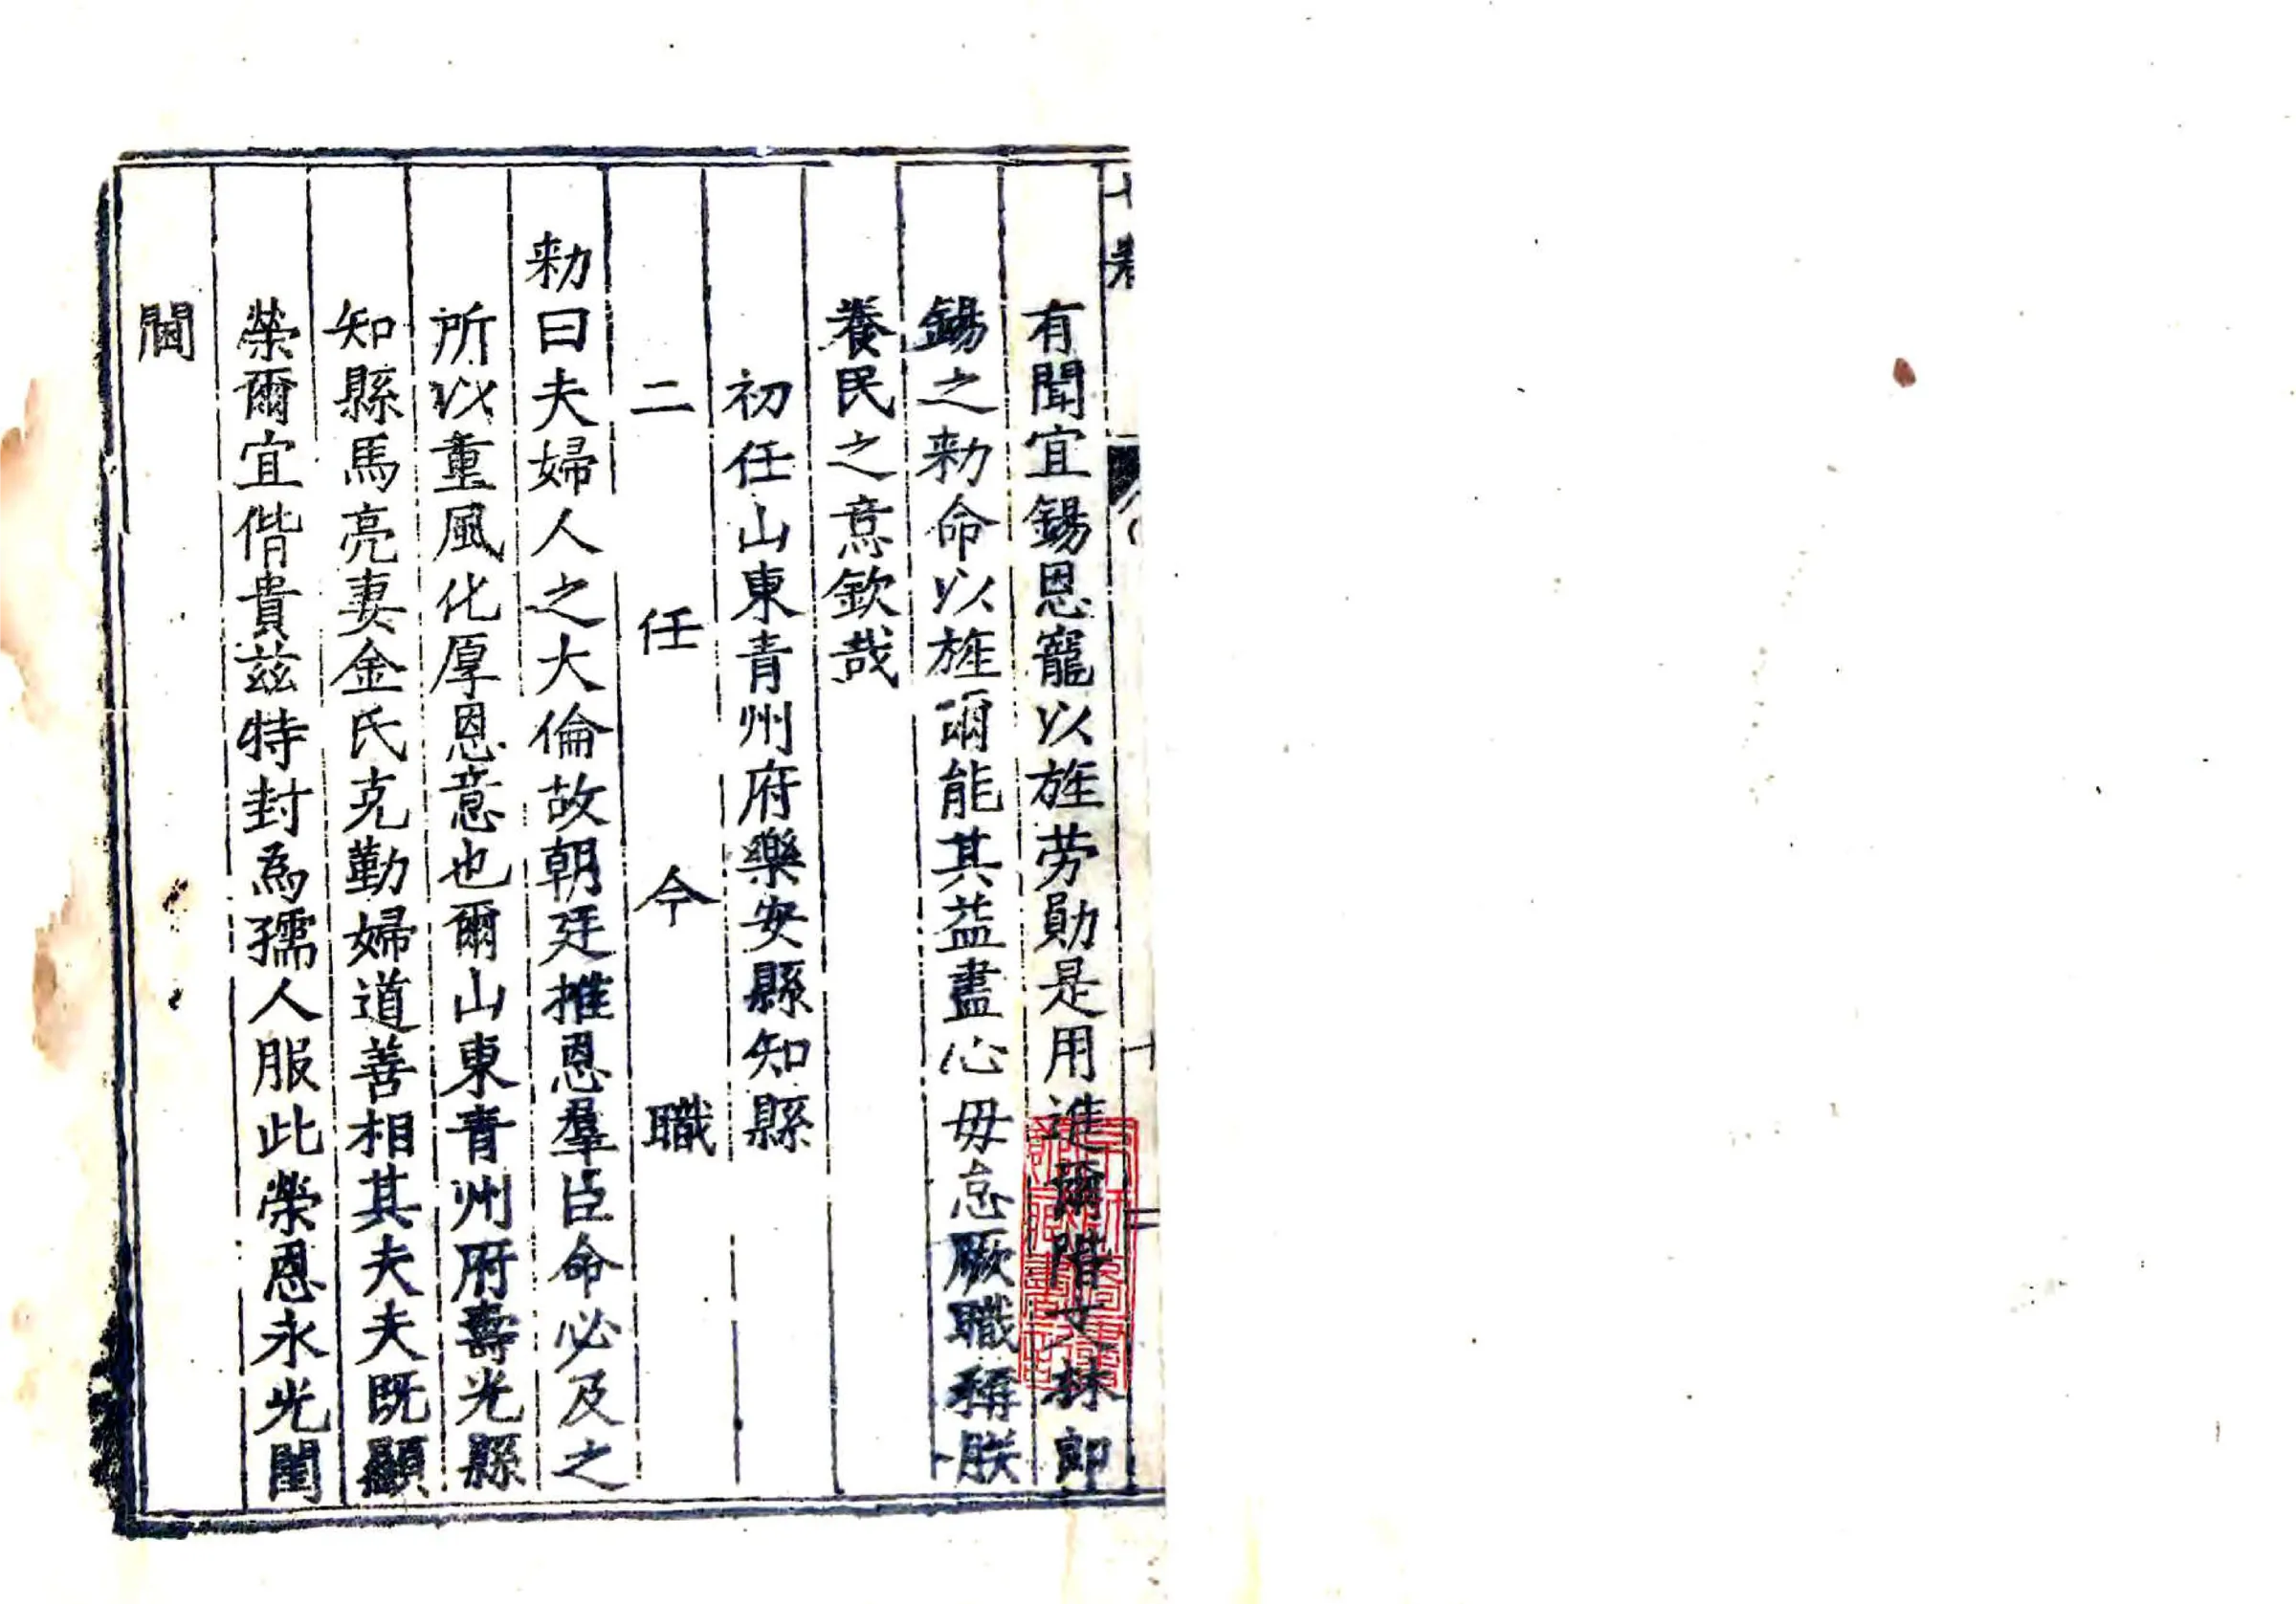 有聞宜錫恩寵以旌劳勛是用進爾階文林郎
錫之勑命以旌爾能其益盡心毋怠厥職稱朕
養民之意欽哉
初任山東青州府樂安縣知縣
二任今職
勑曰夫婦人之大倫故朝廷推恩羣臣命必及之
所以重風化厚恩意也爾山東青州府壽光縣
知縣馬亮妻金氏克勤婦道善相其夫夫既顯
榮爾宜偕貴茲特封為孺人服此榮恩永光閨
閫